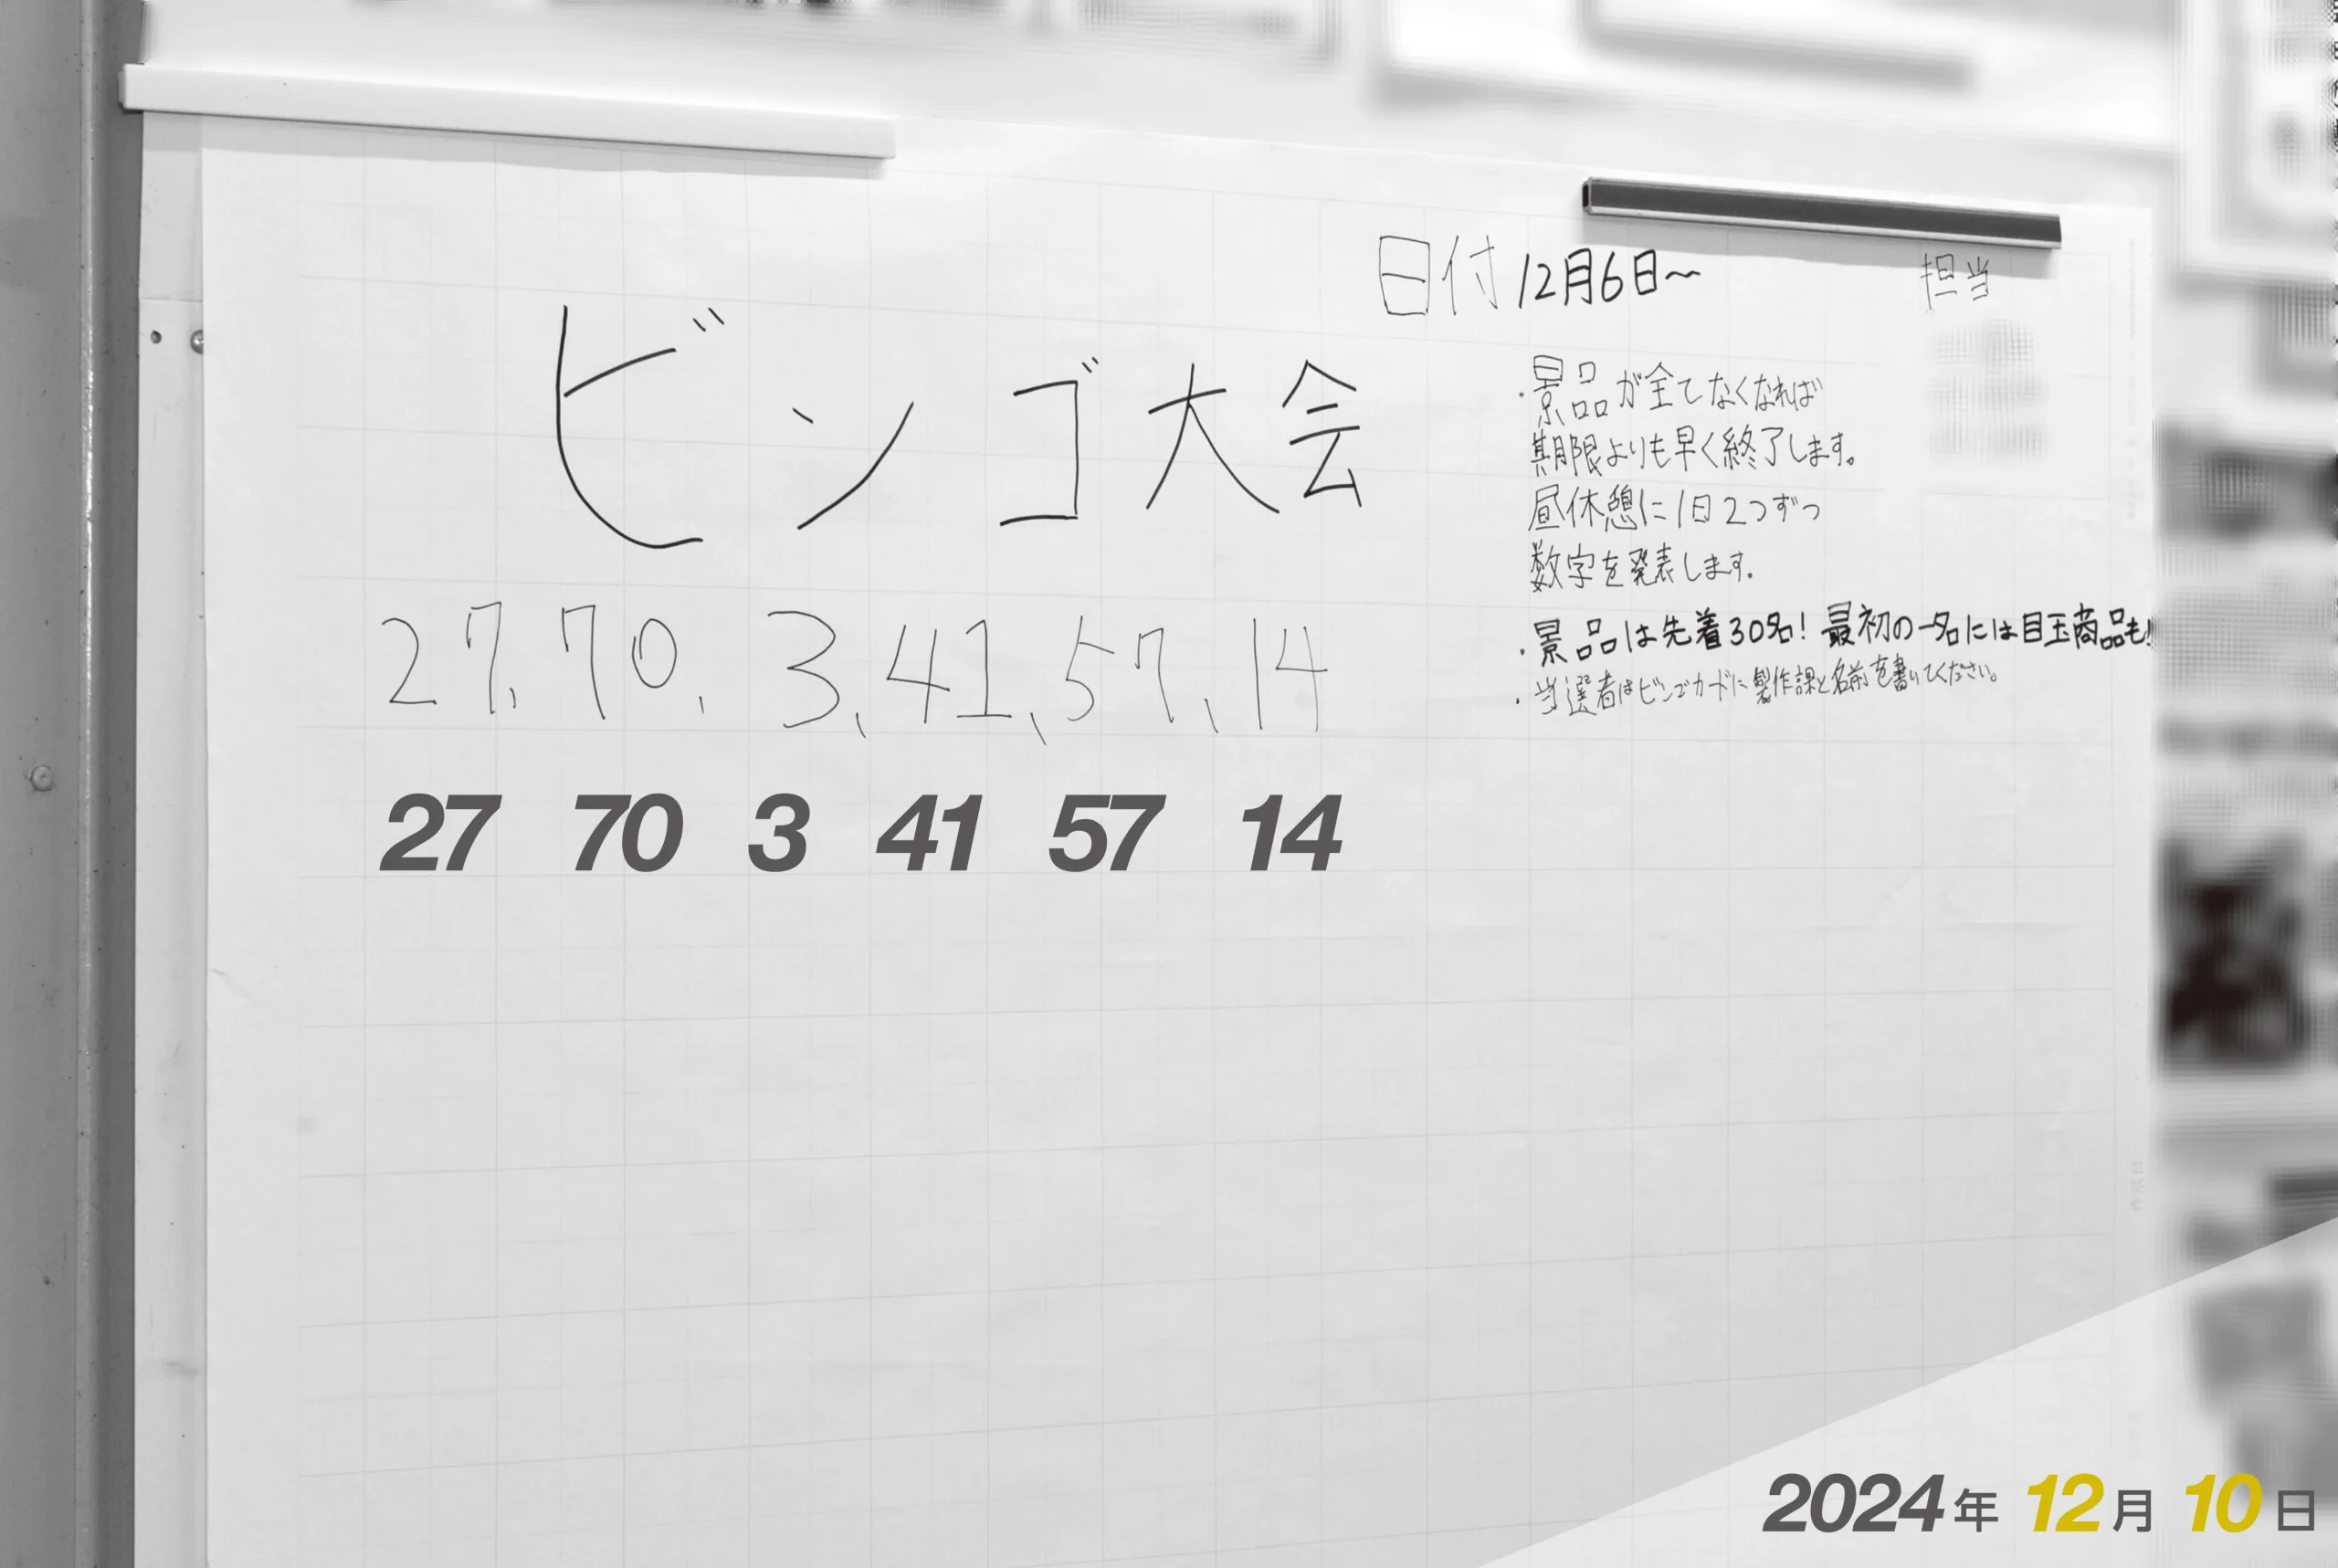 日付 12月6日〜
担当
ビンゴ大会
・景品が全てなくなれば
期限よりも早く終了します。
昼休憩に1日2つずつ
数字を発表します。
・景品は先着30名!最初の一名には目玉商品も!
・当選者はビンゴカードに製作課と名前を書いてください。
27, 70, 3, 41, 57, 14
27 70 3 41 57 14
2024年 12月 10日